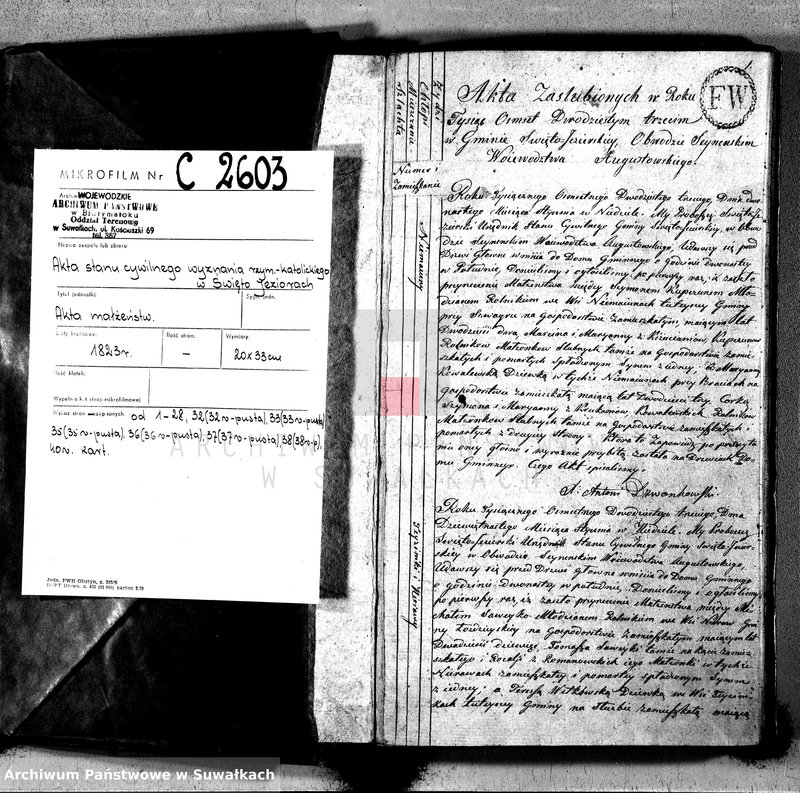 MIKROFILM Nr C 2603
WOJEWÓDZKIE
ARCHIWUM PAŃSTWOWE
w Białymstoku
Oddział Terenowy
w Suwałkach, ul. Kościuszki 69
tel. 367
Nazwa zespołu lub zbioru:
Akta stanu cywilnego wyznania rzym.-katolickiego
w Święto Jeziorach
Tytuł jednostki:
Sygn. jedn.
Akta małżeństw.
Daty krańcowe:
Ilość stron:
Wymiary:
1823r.
–
20x33cm
Ilość klatek:
Wypełnia k.t. stacji mikrofilmowej
od 1-28, 32(32v-pusta), 33(33v-pusta)
35(35v-pusta), 36(36v-pusta), 37(37v-pusta), 38(38v-p),
kart.
Jedn. PWH Olsztyn, z. 365/8
Żydzi
Chłopi
Mieszczanie
Szlachta
Numer:
Zamieszkanie
FW
Akta Zaslubionych w Roku
Tysiąc Ośmset Dwodziestym trzecim
w Gminie Swięto-Jezierskiey, Obwodzie Seynenskim
Woiewództwa Augustowskiego.
Niemiawy
Roku tysiącznego Osmsetnego Dwódziestego trzeciego, Dnia dwu
nastego Miesiąca Stycznia w Niedziele. My Proboszcz Swięto Je
zierski Urzędnik Stanu Cywilnego Gminy Swięto Jezierskiey, w Obwo
dzie Seynenskim Woiewództwa Augustowskiego, Udawszy się przed
Drzwi Głowne wniścia do Domu Gminnego o godzinie dwónastey
w Południe, Donieslimy i ogłosilimy, po pierwszy raz, iż zaszło
przyrzeczenie Małżenstwa między Szymonem
dzianem Rolnikiem we Wsi Niemiawach tuteyszey Gminy
przy Szwagru na Gospodarstwie zamieszkałym, maiącym lat
Dwódzieścia dwa, Marcina i Maryanny z
Rolników Małżonków slubnych tamże na Gospodarstwie zamie
szkałych i pomarłych Spłodzonym Synem z iedney; a Maryanną
Kowalewską Dziewką w tychże Niemiawach przy Braciach na
gospodarstwie zamieszkałą maiącą lat Dwódzieścia trzy, Corką
Szymona i Maryanny z Kowalewskich Rolników
Małżonków Slubnych tamże na Gospodarstwie zamieszkałych i
pomarłych z drugiey Strony. Któwa to Zapowiedz po przeczyta
niu oney głośno i wyraznie przybitą została na Drzwiach Do
mu Gminnego. Czego Akt spisalismy.
X. Antoni Dzwonkowski.
Roku tysiącznego Osmsetnego Dwódziestego trzeciego, Dnia
Dziewiętnastego Miesiąca Stycznia w Niedziele. My Proboszcz
Swięto-Jezierski Urzędnik Stanu Cywilnego Gminy Swięto-Jezier
skiey w Obwodzie Seynenskim Woiewództwa Augustowskiego,
Udawszy się przed Drzwi Głowne wniścia do Domu Gminnego
o godzinie Dwónastey w południe, Donieslimy i ogłosilimy,
po pierwszy raz, iż zaszło przyrzeczenie Małżenstwa między Mi
chałem Saweyko Młodzianem Rolnikiem we Wsi Gmi
ny Łoździeyskiey na Gospodarstwie Zamieszkałym maiącym lat
Dwadzieścia dziewięć, Tomasza Saweyki tamże zamie
szkałego i Rozalii z Romanowskich iego Małżonki w tychże
zamieszkałey i pomarłey spłodzonym Synem
z iedney; a Teresą Witkowską Dziewką we Wsi
kach tuteyszey Gminy na Służbie zamieszkałą maiącą
ARCHIWUM PAŃSTWOWE
W SUWAŁKACH
Archiwum Państwowe w Suwałkach